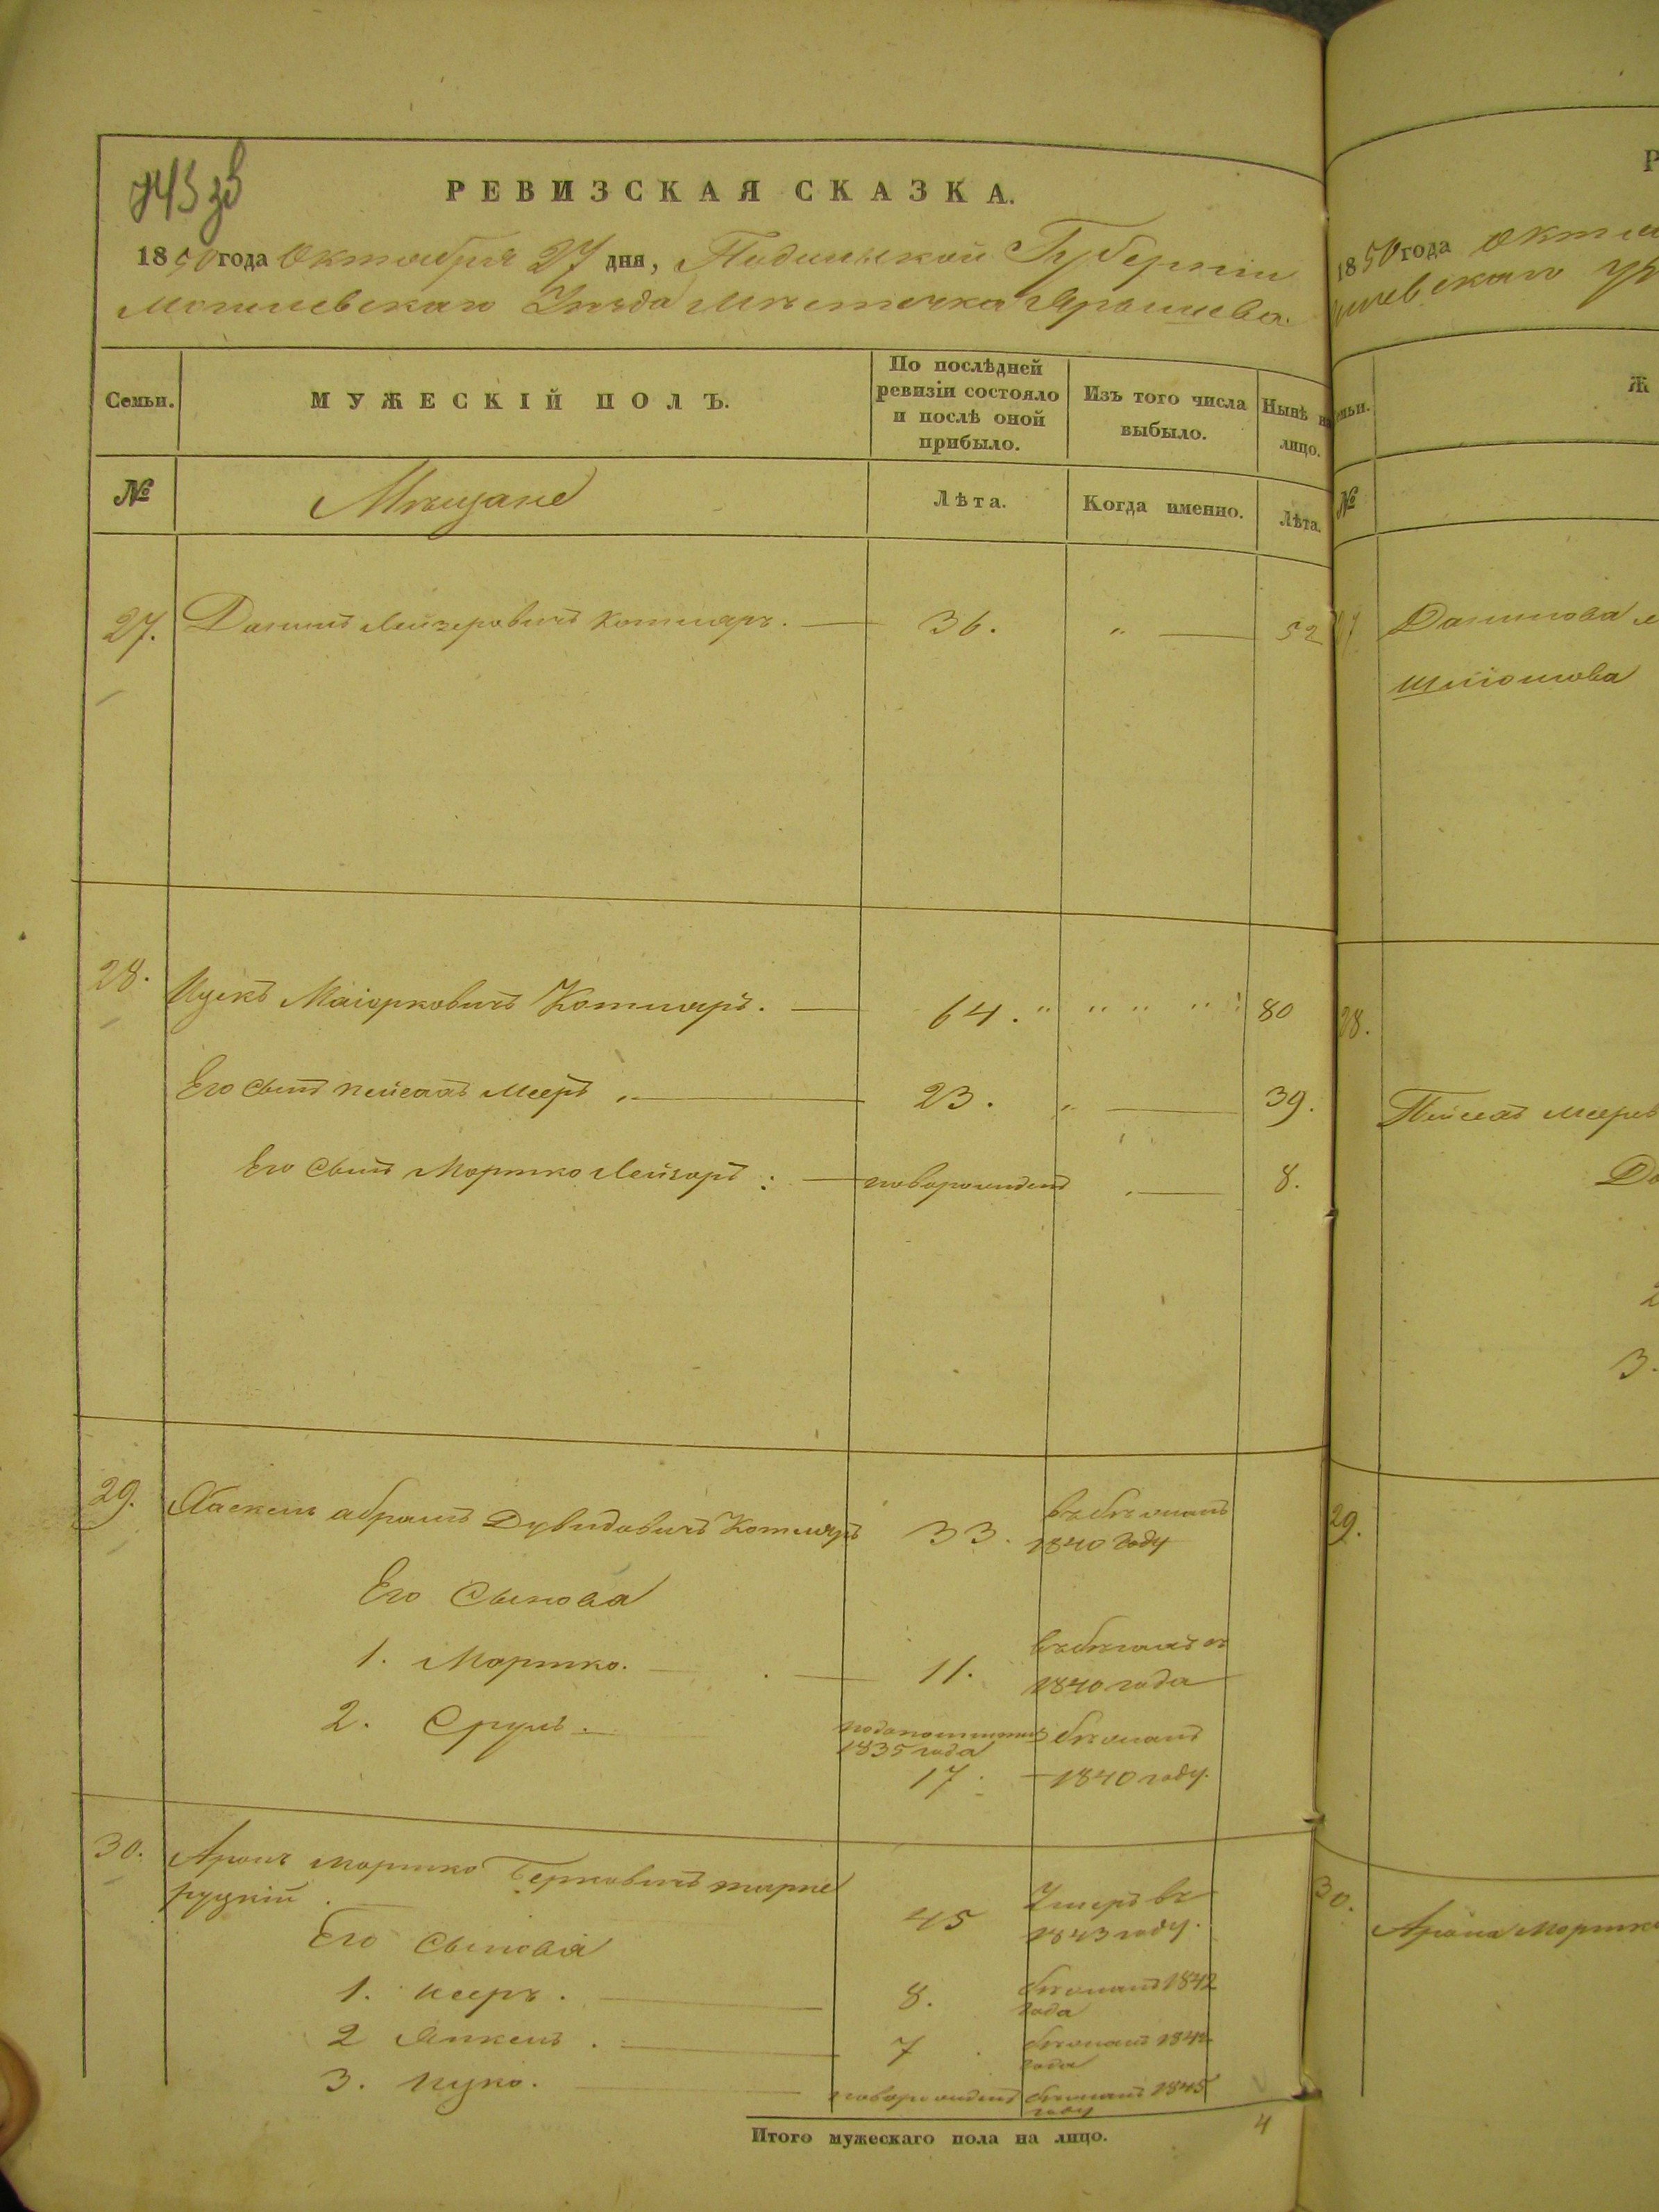 РЕВИЗСКАЯ СКАЗКА.
1850 года Октября 27 дня, Подольской Губернии
Могилевскаго Уѣзда Мѣстечка Ярышева.
Семьи.
МУЖЕСКІЙ ПОЛЪ.
По послѣдней
ревизіи состояло
и послѣ оной
прибыло.
Изъ того числа
выбыло.
Нынѣ на
лицо.
№
Мѣщане
Лѣта.
Когда именно.
Лѣта.
27. Данилъ Лейзеровичъ Котляръ. 36. 52
28. Ицекъ Маіорковичъ Котляръ. 64. 80
Его сынъ Пейсахъ Мееръ 23. 39.
Его сынъ Мортко Лейзоръ новорожденъ 8.
29. Хаскель Абрамъ Дувидовичъ Котляръ 33.
1840 году
Его Сыновя
1. Мортко. 11.
1840 года
2. Сруль. 1835 года бѣжалъ
17. 1840 году.
30. Аронъ Мортко Берковичъ
руцкій 45 Умеръ въ
1843 году.
Его Сыновя
1. Мееръ. 8. бѣжалъ 1842
года
2 Янкель. 7 бѣжалъ 1842
года
3. Ицко. новорожденъ бѣжалъ 1845
году
Итого мужескаго пола на лицо. 4
Р
1850 года Октя
Ж
№
Данилова
Шліомова
28.
Пейсах Меера
3.
29.
30.
Арона Мортк